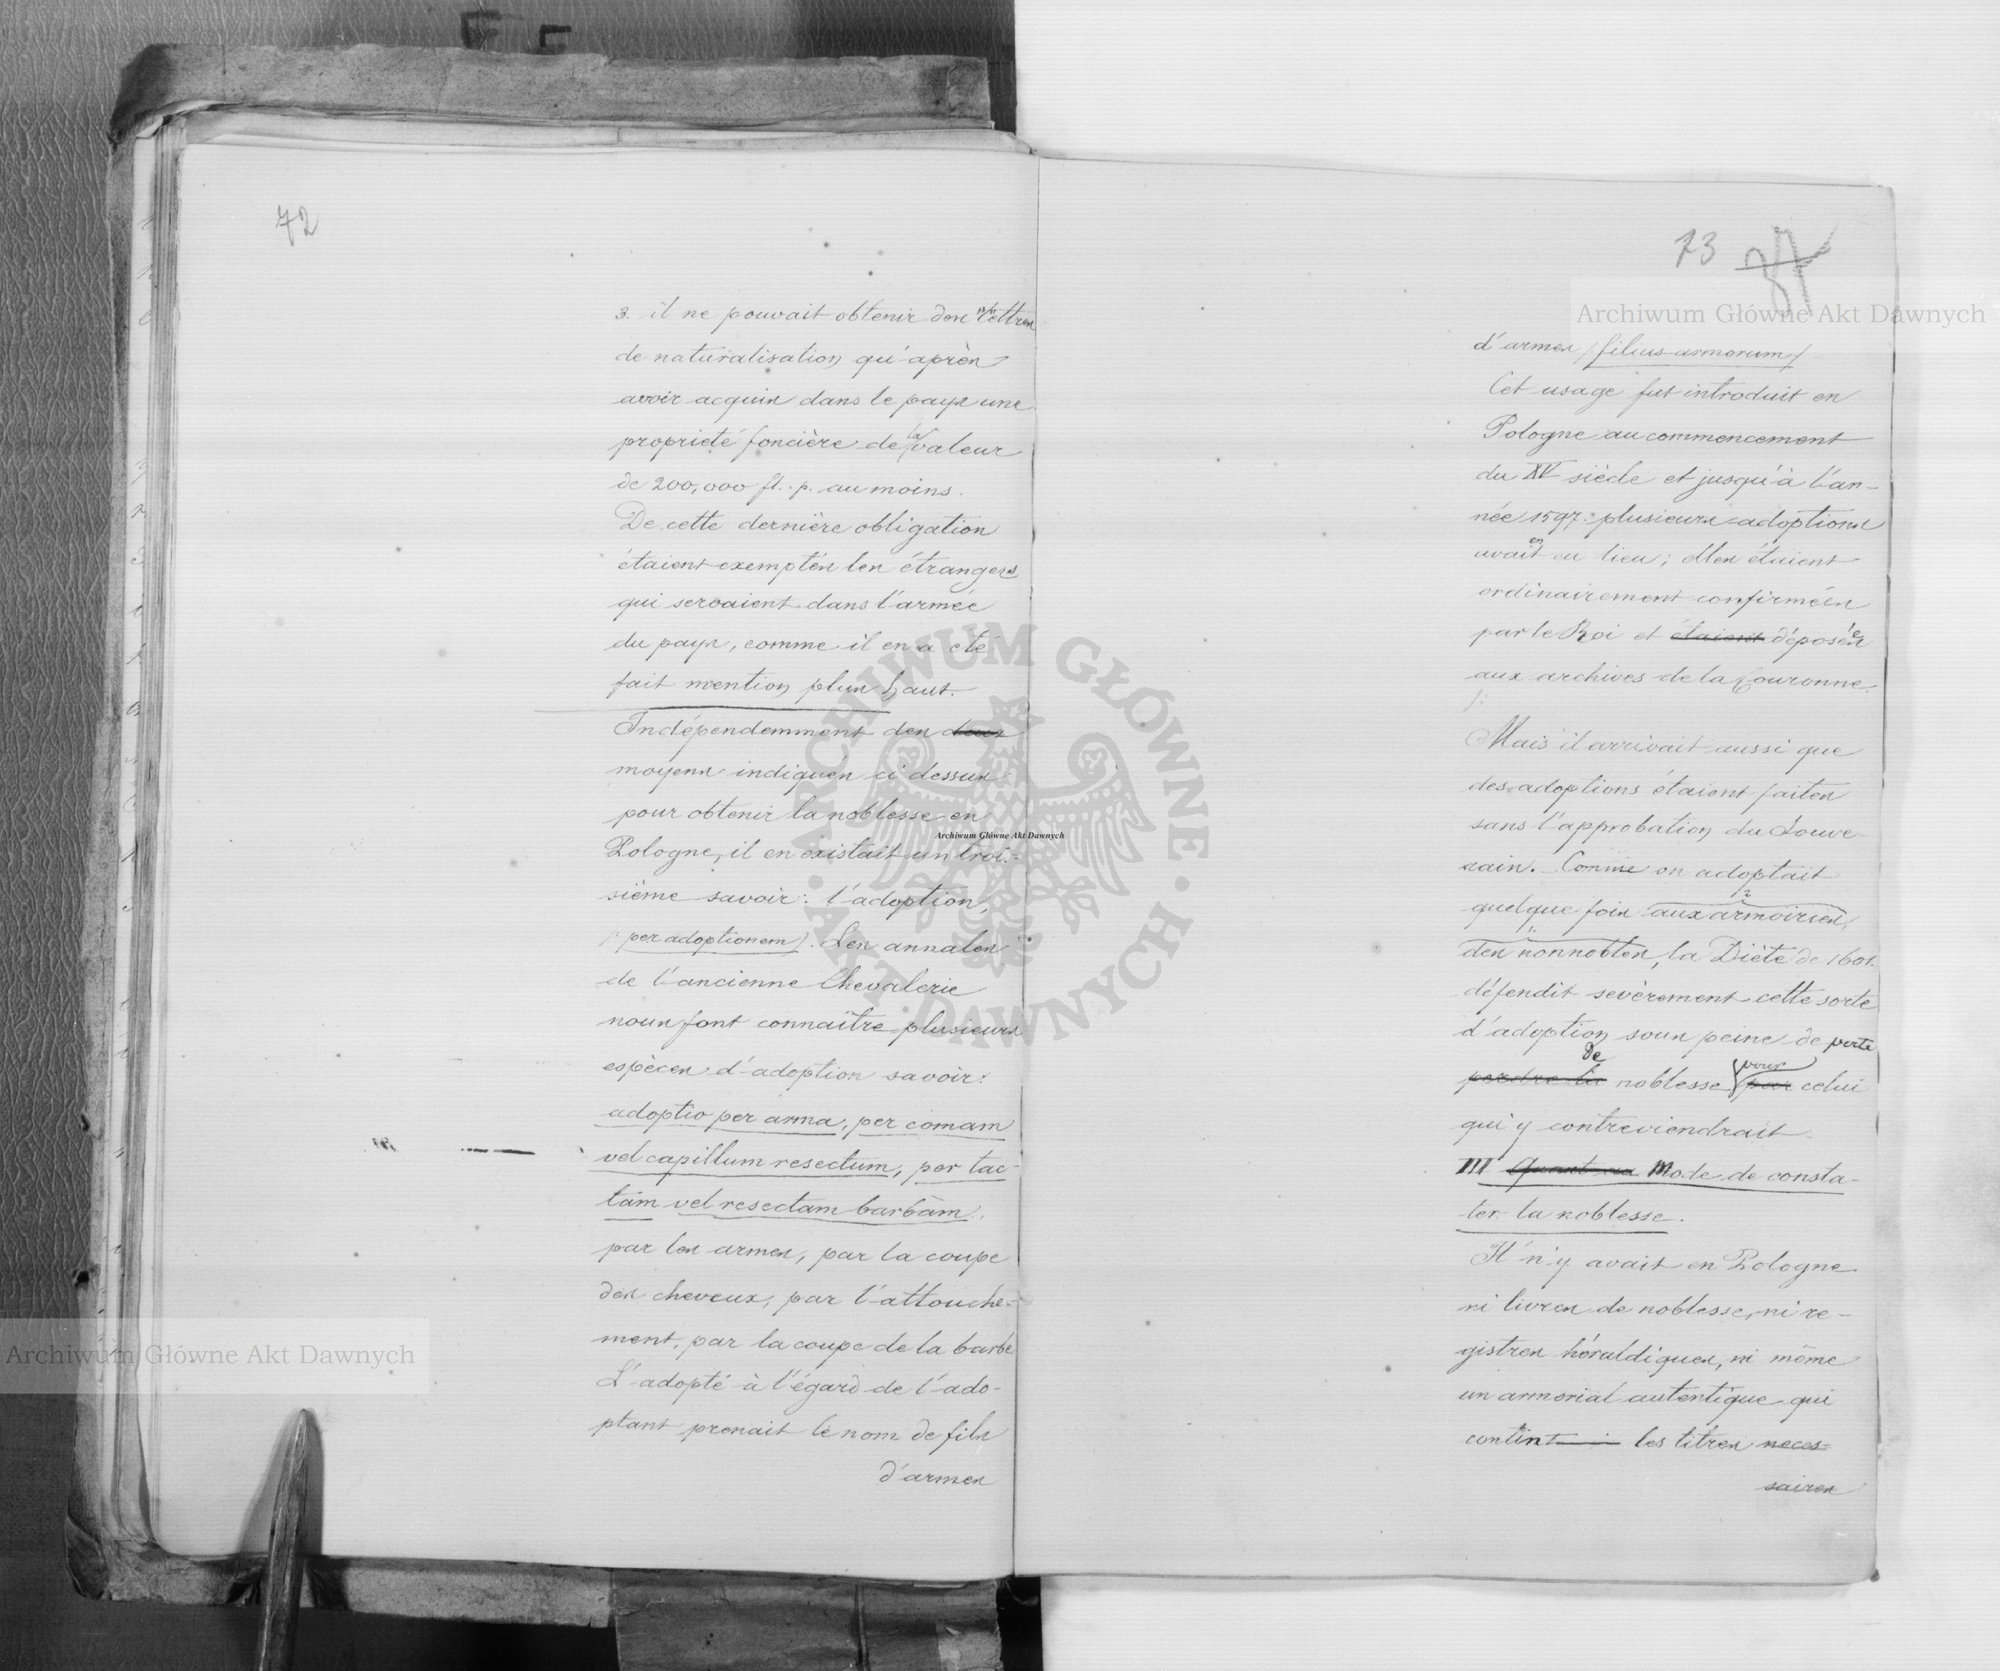 72
3. il ne pouvait obtenir des lettres
de naturalisation qu'après
avoir acquis dans le pays une
proprieté foncière de la valeur
de 200,000 fl. p. au moins.
De cette dernière obligation
étaient exemptés les étrangers
qui servaient dans l'armée
du pays, comme il en a été
fait mention plus haut.
Indépendemment des deux
moyens indiqués ci dessus
pour obtenir la noblesse en
Pologne, il en existait un troi-
sième savoir: l'adoption,
(per adoptionem). Les annales
de l'ancienne Chevalerie
nous font connaître plusieurs
espèces d'adoption savoir:
adoptio per arma, per comam
vel capillum resectum, per tac-
tam vel resectam barbam.
par les armes, par la coupe
des cheveux, par l'attouche-
ment, par la coupe de la barbe
L'adopté à l'égard de l'ado-
ptant prenait le nom de fils
d'armes
73 37
d'armes (filius armorum)
Cet usage fut introduit en
Pologne au commencement
du XV siècle et jusqu'à l'an-
née 1597 plusieurs adoptions
en
avait eu lieu; elles étaient
ordinairement confirmées
par le Roi et étaient déposées
aux archives de la Couronne.
Mais il arrivait aussi que
des adoptions étaient faites
sans l'approbation du Souve-
rain. Comme on adoptait
2
quelque fois aux armoiries,
des nonnobles, la Diète de 1601.
défendit sevèrement cette sorte
d'adoption sous peine de perte
de pour
perdre la noblesse par celui
qui y contreviendrait
III Quant au Mode de consta-
ter la noblesse.
Il n'y avait en Pologne
ni livres de noblesse, ni re-
gistres héraldiques, ni même
un armorial autentique qui
contint les titres neces-
saires
Archiwum Główne Akt Dawnych
Archiwum Główne Akt Dawnych
Archiwum Główne Akt Dawnych
ARCHIWUM GŁÓWNE · AKT DAWNYCH ·